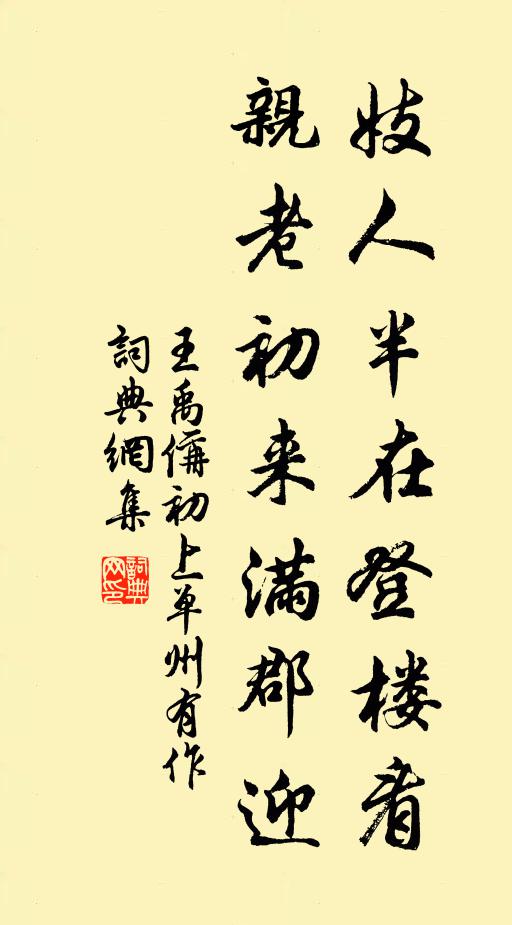 妓人半在登楼看
親老初来满郡迎
王禹偁初上单州有作
詞典網集
詞典网印